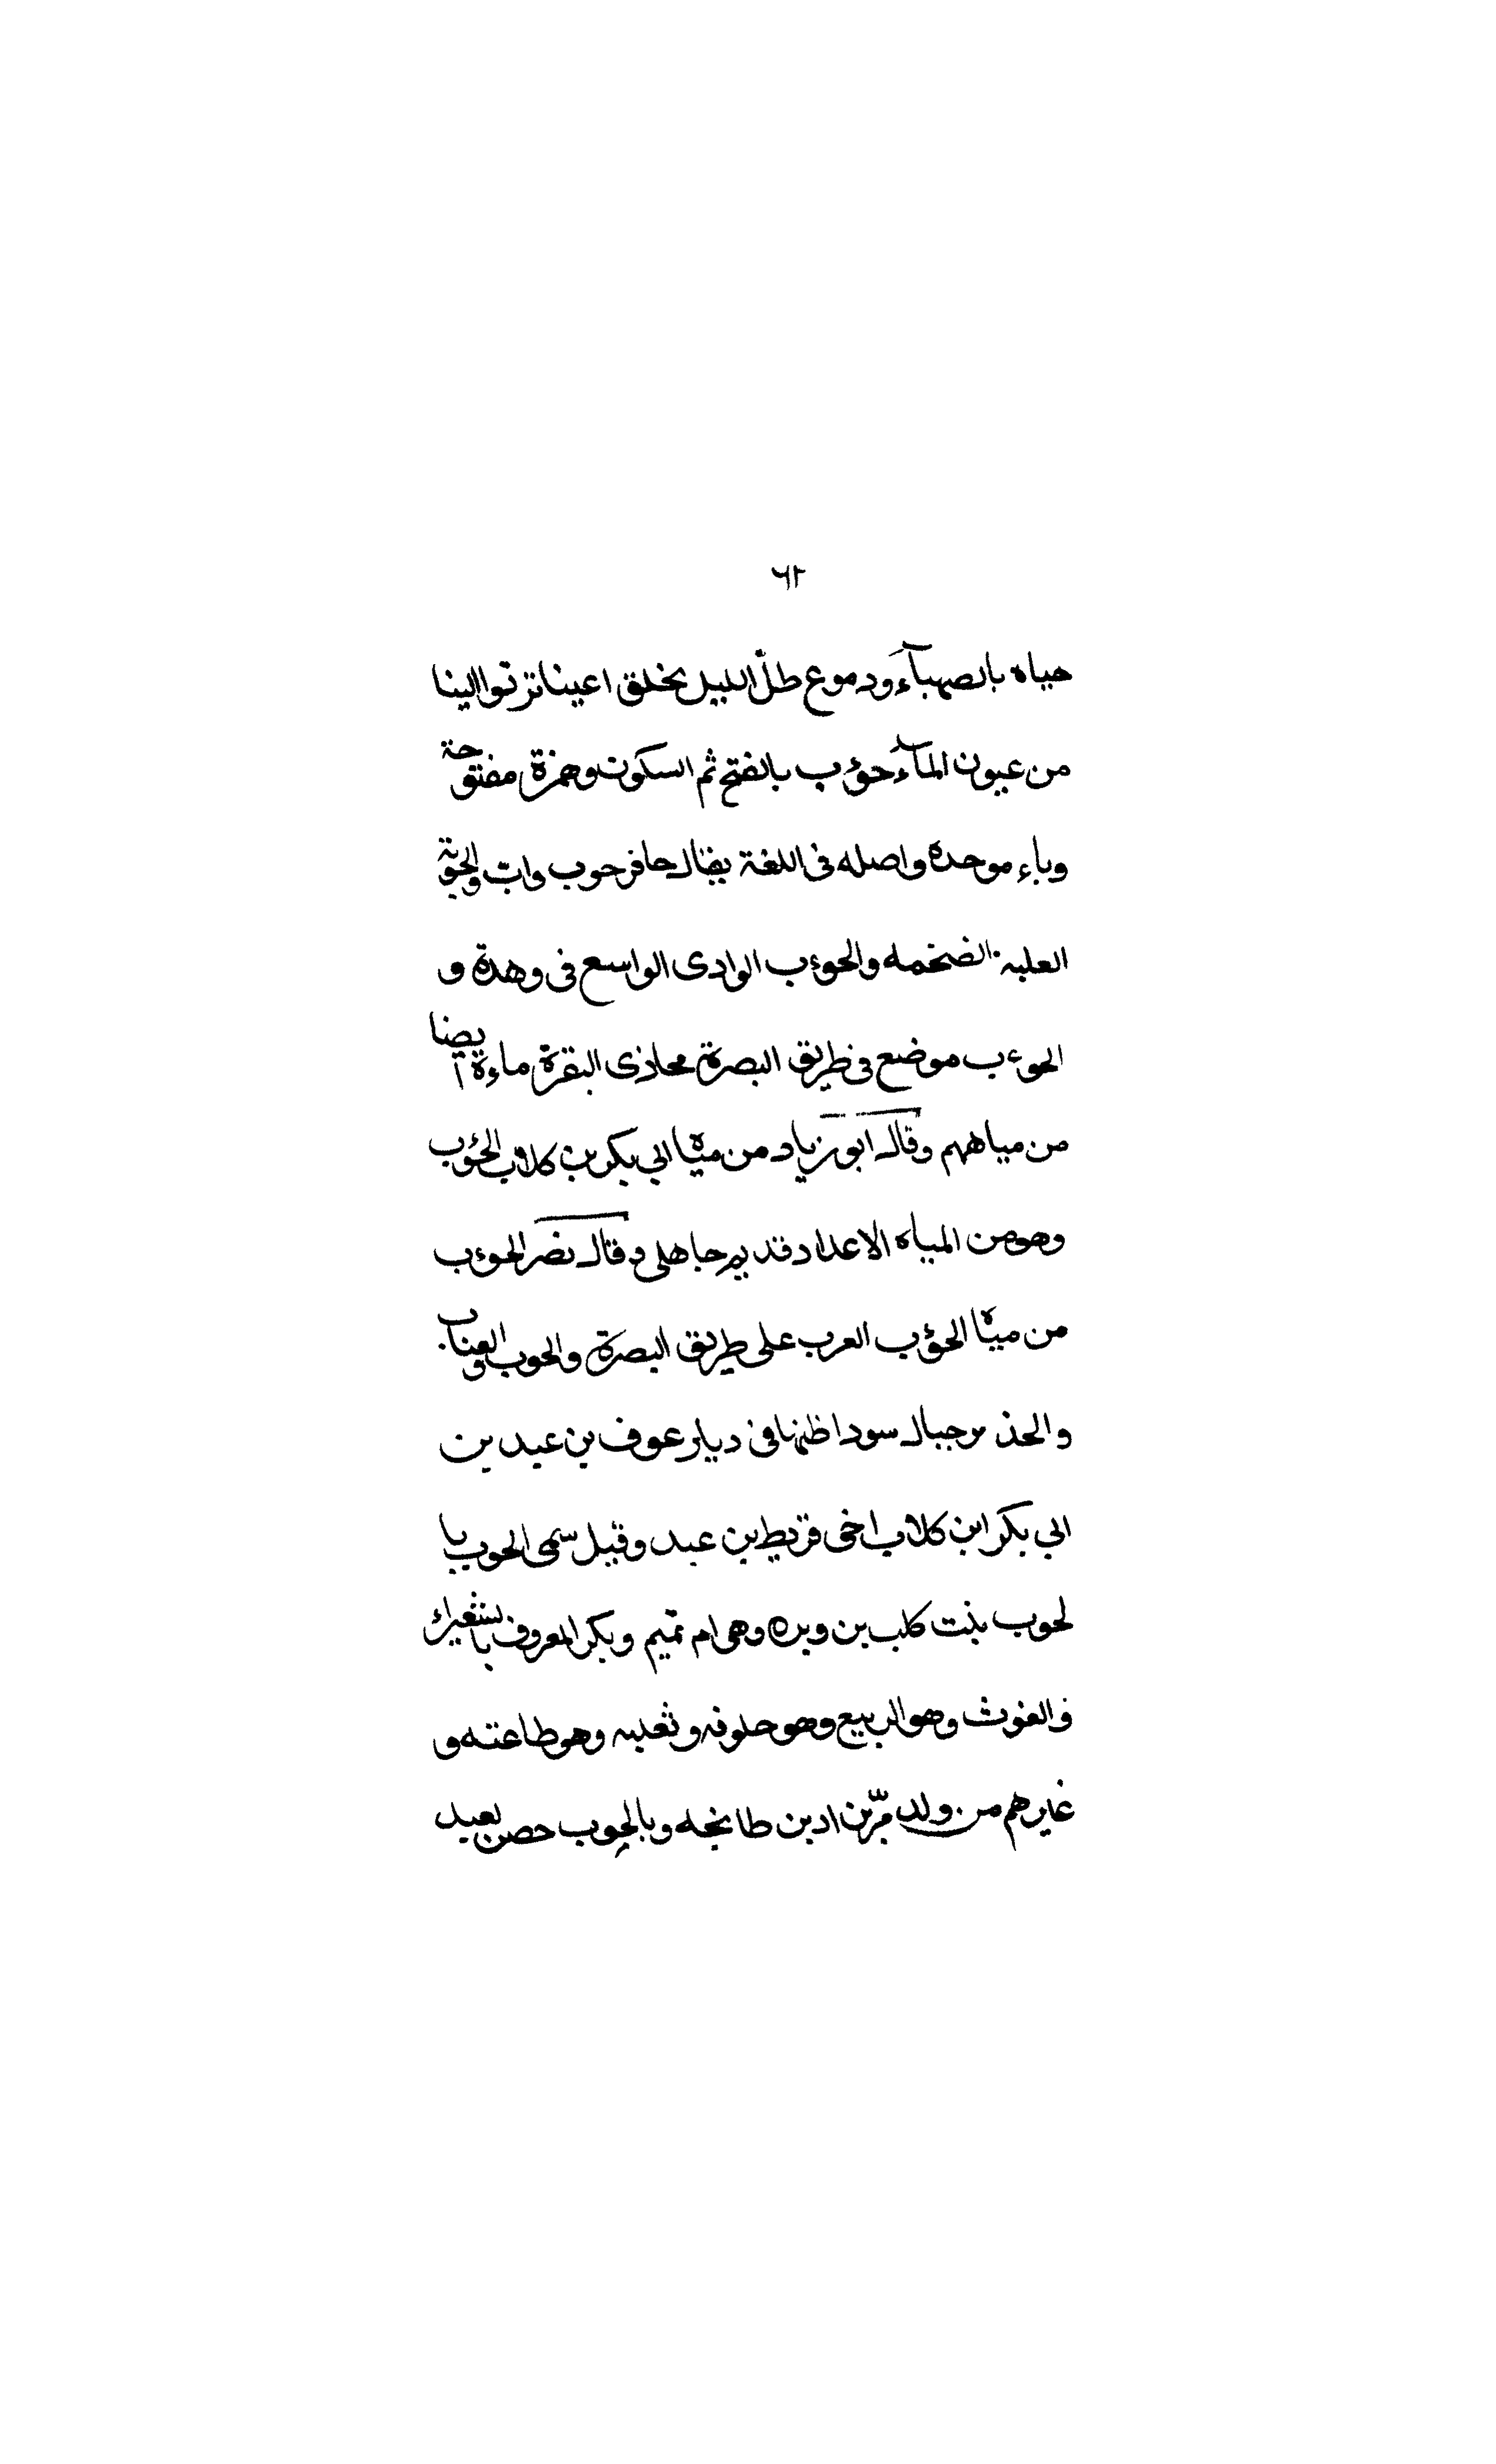 ٦٢
حياه بالصهبآء ودموع طلّ الليل يخلق اعينا ترنوا الينا
من عيون المآء حوٴب بالفتح ثم السكون وهمزة مفتوحة
وباء موحده واصله فى اللغة يقال حافر حوب واب والحوبة
العلبه الضخمه والحوءب الوادى الواسع فى وهدة و
الحوءب موضع فى طريق البصرة محاذى البقرة ماءة ايضا
من مياههم وقال ابو زياد من مياه ابي بكر بن كلاب الحؤب
وهو من المياه الاعداد قديم جاهلى وقال نصر الحوءب
من مياه الحؤب العرب على طريق البصرة والحوب والعناب
والحذ من جبال سود اظنها فى ديار عوف بن عبد بن
ابي بكر ابن كلاب اخى قريط بن عبد وقيل سمى الحوب با
لحوب بنت كلب بن وبره وهى ام تميم وبكر المعروف بالشعيراء
والغوث وهو الربيع وهو حلوفه وثعلبه وهو طاعنه و
غيرهم من ولد مرّ بن اد بن طابخه وبالجوب حصن بعيد